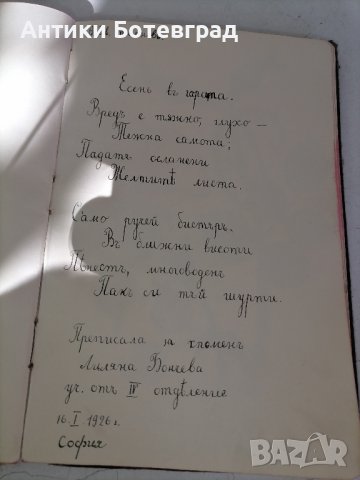 Антики Ботевград
Есень въ гората.
Вредъ е тѫжно, глухо —
Тежка самота;
Падатъ осланени
Желтитѣ листа.
Само ручей бистъръ.
Въ ближни висоти
Пѣнестъ, многоводенъ
Пакъ си тъй шурти.
Преписала за споменъ
Лиляна Бончева
уч. отъ IV отдѣление
16.I 1926 г.
София
bazar